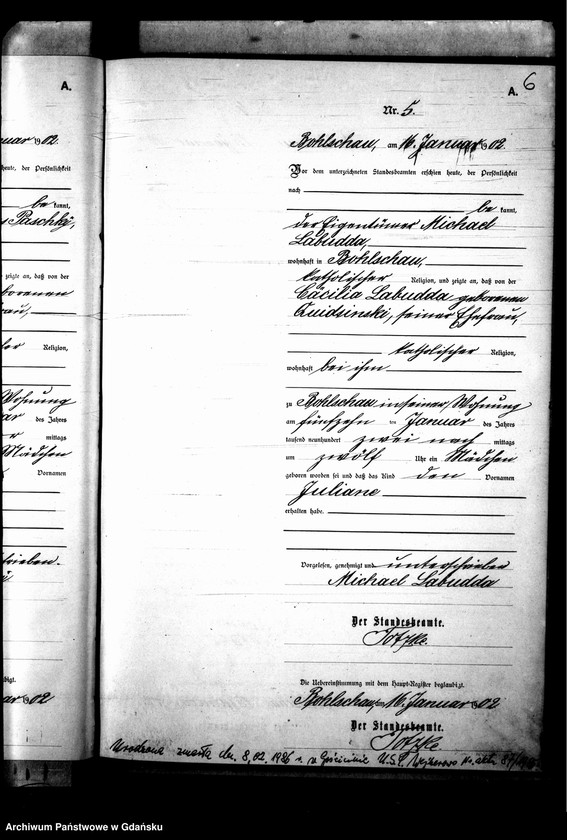 A.
uar 1902.
heute, der Persönlichkeit
be kannt,
Paschke,
zeigte an, daß von der
borenen
rau,
Religion,
Wohnung
ar des Jahres
mittags
Mädchen
Vornamen
rieben.
bigt.
ar 02
A. 6
Nr. 5.
Bohlschau, am 16. Januar 1902.
Vor dem unterzeichneten Standesbeamten erschien heute, der Persönlichkeit
nach
be kannt,
der Eigentümer Michael
Labudda,
wohnhaft in Bohlschau,
katholischer Religion, und zeigte an, daß von der
Cäcilia Labudda geborenen
seiner Ehefrau,
katholischer Religion,
wohnhaft bei ihm
zu Bohlschau in seiner Wohnung
am fünfzehn ten Januar des Jahres
tausend neunhundert zwei nach mittags
um zwölf Uhr ein Mädchen
geboren worden sei und daß das Kind den Vornamen
Juliane
erhalten habe.
Vorgelesen, genehmigt und unterschrieben
Michael Labudda
Der Standesbeamte.
Totzke.
Die Uebereinstimmung mit dem Haupt-Register beglaubigt.
Bohlschau, am 16. Januar 1902
Der Standesbeamte.
Totzke
Urodzona zmarła dn. 8.02.1986 r. w Gościcinie U.S.C. Wejherowo Nr. aktu
Archiwum Państwowe w Gdańsku